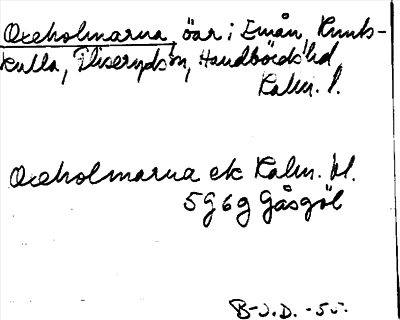 Oxeholmarna, öar i Emån, Kunts-
kulla, Virserums sn, Handbörds hd,
Kalm. l.
Oxeholmarna ek Kalm. bl.
5 g 6 g Gåsgöl
B-J.D. -55.